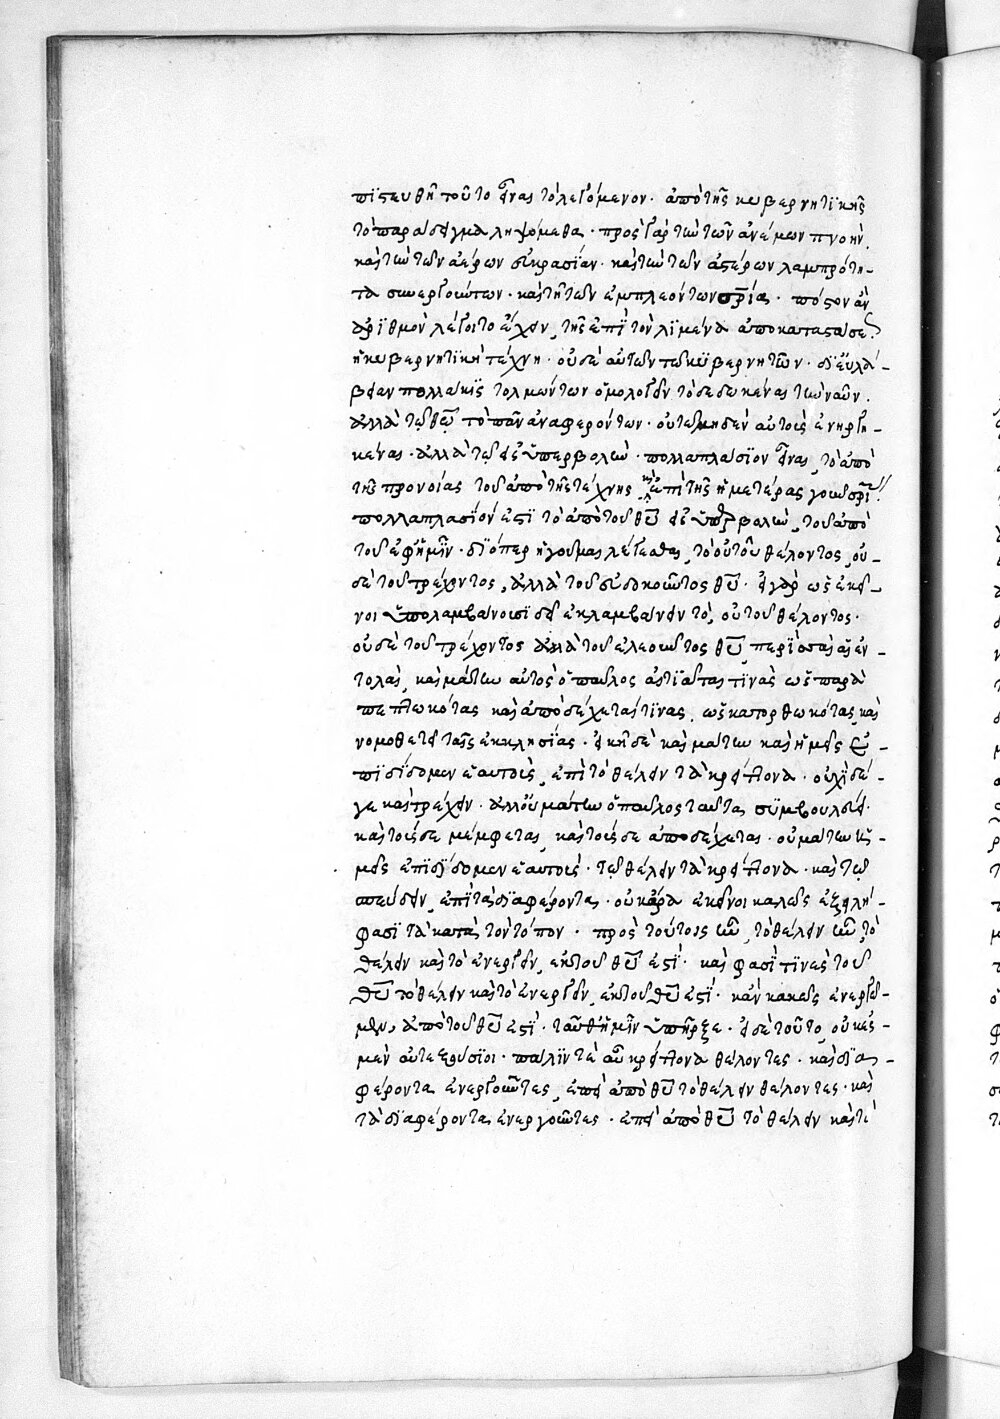 πιστευθῆ τοῦτο εἶναι τὸ λεγόμενον· ἀπὸ τῆς κυβερνητικῆς
τὸ παράδειγμα ληψόμεθα· πρὸς γὰρ τὴν τῶν ἀνέμων πνοὴν
καὶ τὴν τῶν ἀέρων εὐκρασίαν· καὶ τὴν τῶν ἀστέρων λαμπρότη-
τα συνεργούντων· καὶ τῇ τῶν ἐμπλεόντων σρία· πόστον ἂν
ἀριθμὸν λέγοιτο ἔχειν, τῆς ἐπὶ τὸν λιμένα ἀποκαταστάσε
ἡ κυβερνητικὴ τέχνη· οὐδὲ αὐτῶν τῶν κυβερνητῶν· δι' εὐλά-
βειαν πολλάκις τολμώντων ὁμολογεῖν τὸ σεσωκέναι τὴν ναῦν·
ἀλλὰ τῷ θῶ τὸ πᾶν ἀναφερόντων· οὐ τῷ μηδὲν αὐτοὺς ἐνηργη-
κέναι· ἀλλὰ τῷ εἰς ὑπερβολὴν· πολλαπλάσιον εἶναι τὸ ἀπὸ
τῆς προνοίας τοῦ ἀπὸ τῆς τέχνης καὶ ἐπὶ τῆς ἡμετέρας γοῦν σρι
πολλαπλάσιόν ἐστι τὸ ἀπὸ τοῦ θῦ εἰς ὑπερβολὴν, τοῦ ἀπὸ
τοῦ ἐφ' ἡμῖν· διόπερ ἡγοῦμαι λέγεσθαι, τὸ οὐ τοῦ θέλοντος, οὐ-
δὲ τοῦ τρέχοντος, ἀλλὰ τοῦ εὐδοκοῦντος θῦ· εἰ γὰρ ὡς ἐκεῖ-
νοι ὑπολαμβάνουσι δεῖ ἐκλαμβάνειν τὸ, οὐ τοῦ θέλοντος·
οὐδὲ τοῦ τρέχοντος ἀλλὰ τοῦ ἐλεοῦντος θῦ, περισσαὶ αἱ ἐν-
τολαὶ, καὶ μάτην αὐτὸς ὁ παῦλος αἰτιᾶται τινὰς ὡς παρα
πεπτωκότας καὶ ἀποδέχεταί τινας, ὡς κατορθωκότας, καὶ
νομοθετεῖ ταῖς ἐκκλησίαις· εἰκῆ δὲ καὶ μάτην καὶ ἡμεῖς ἐ-
πιδίδομεν ἑαυτοὺς, ἐπὶ τὸ θέλειν τὰ κρείττονα· οὐχὶ δέ-
γε καὶ τρέχειν· ἀλλ' οὐ μάτην ὁ παῦλος ταῦτα συμβουλεύει·
καὶ τούσδε μέμφεται, καὶ τούσδε ἀποδέχεται· οὐ μάτην ἡ-
μεῖς ἐπιδίδομεν ἑαυτοὺς· τῷ θέλειν τὰ κρείττονα· καὶ τῷ
σπεύδειν, ἐπὶ τὰ διαφέροντα· οὐκ ἄρα ἐκεῖνοι καλῶς ἐξειλή-
φασι τὰ κατὰ τὸν τόπον· πρὸς τούτοις ὢν τὸ θέλειν ὢν τὸ
θέλειν καὶ τὸ ἐνεργεῖν, ἐκ τοῦ θῦ ἐστί· καὶ φασί τινες τοῦ
θῦ τὸ θέλειν καὶ τὸ ἐνεργεῖν, ἐκ τοῦ θῦ ἐστί· κἂν κακῶς ἐνεργῶ-
μεν, ἀπὸ τοῦ θῦ ἐστί· ταῦθ' ἡμῖν ὑπῆρξε· εἰ δὲ τοῦτο, οὐκ ἐσ-
μὲν αὐτεξούσιοι· πάλιν τὲ αὖ κρείττονα θέλοντες· καὶ δια-
φέροντα ἐνεργοῦντες, ἐπεὶ ἀπὸ θῦ τὸ θέλειν θέλοντες· καὶ
τὰ διαφέροντα ἐνεργοῦντες· ἐπεὶ ἀπὸ θῦ τὸ θέλειν καὶ τὲ